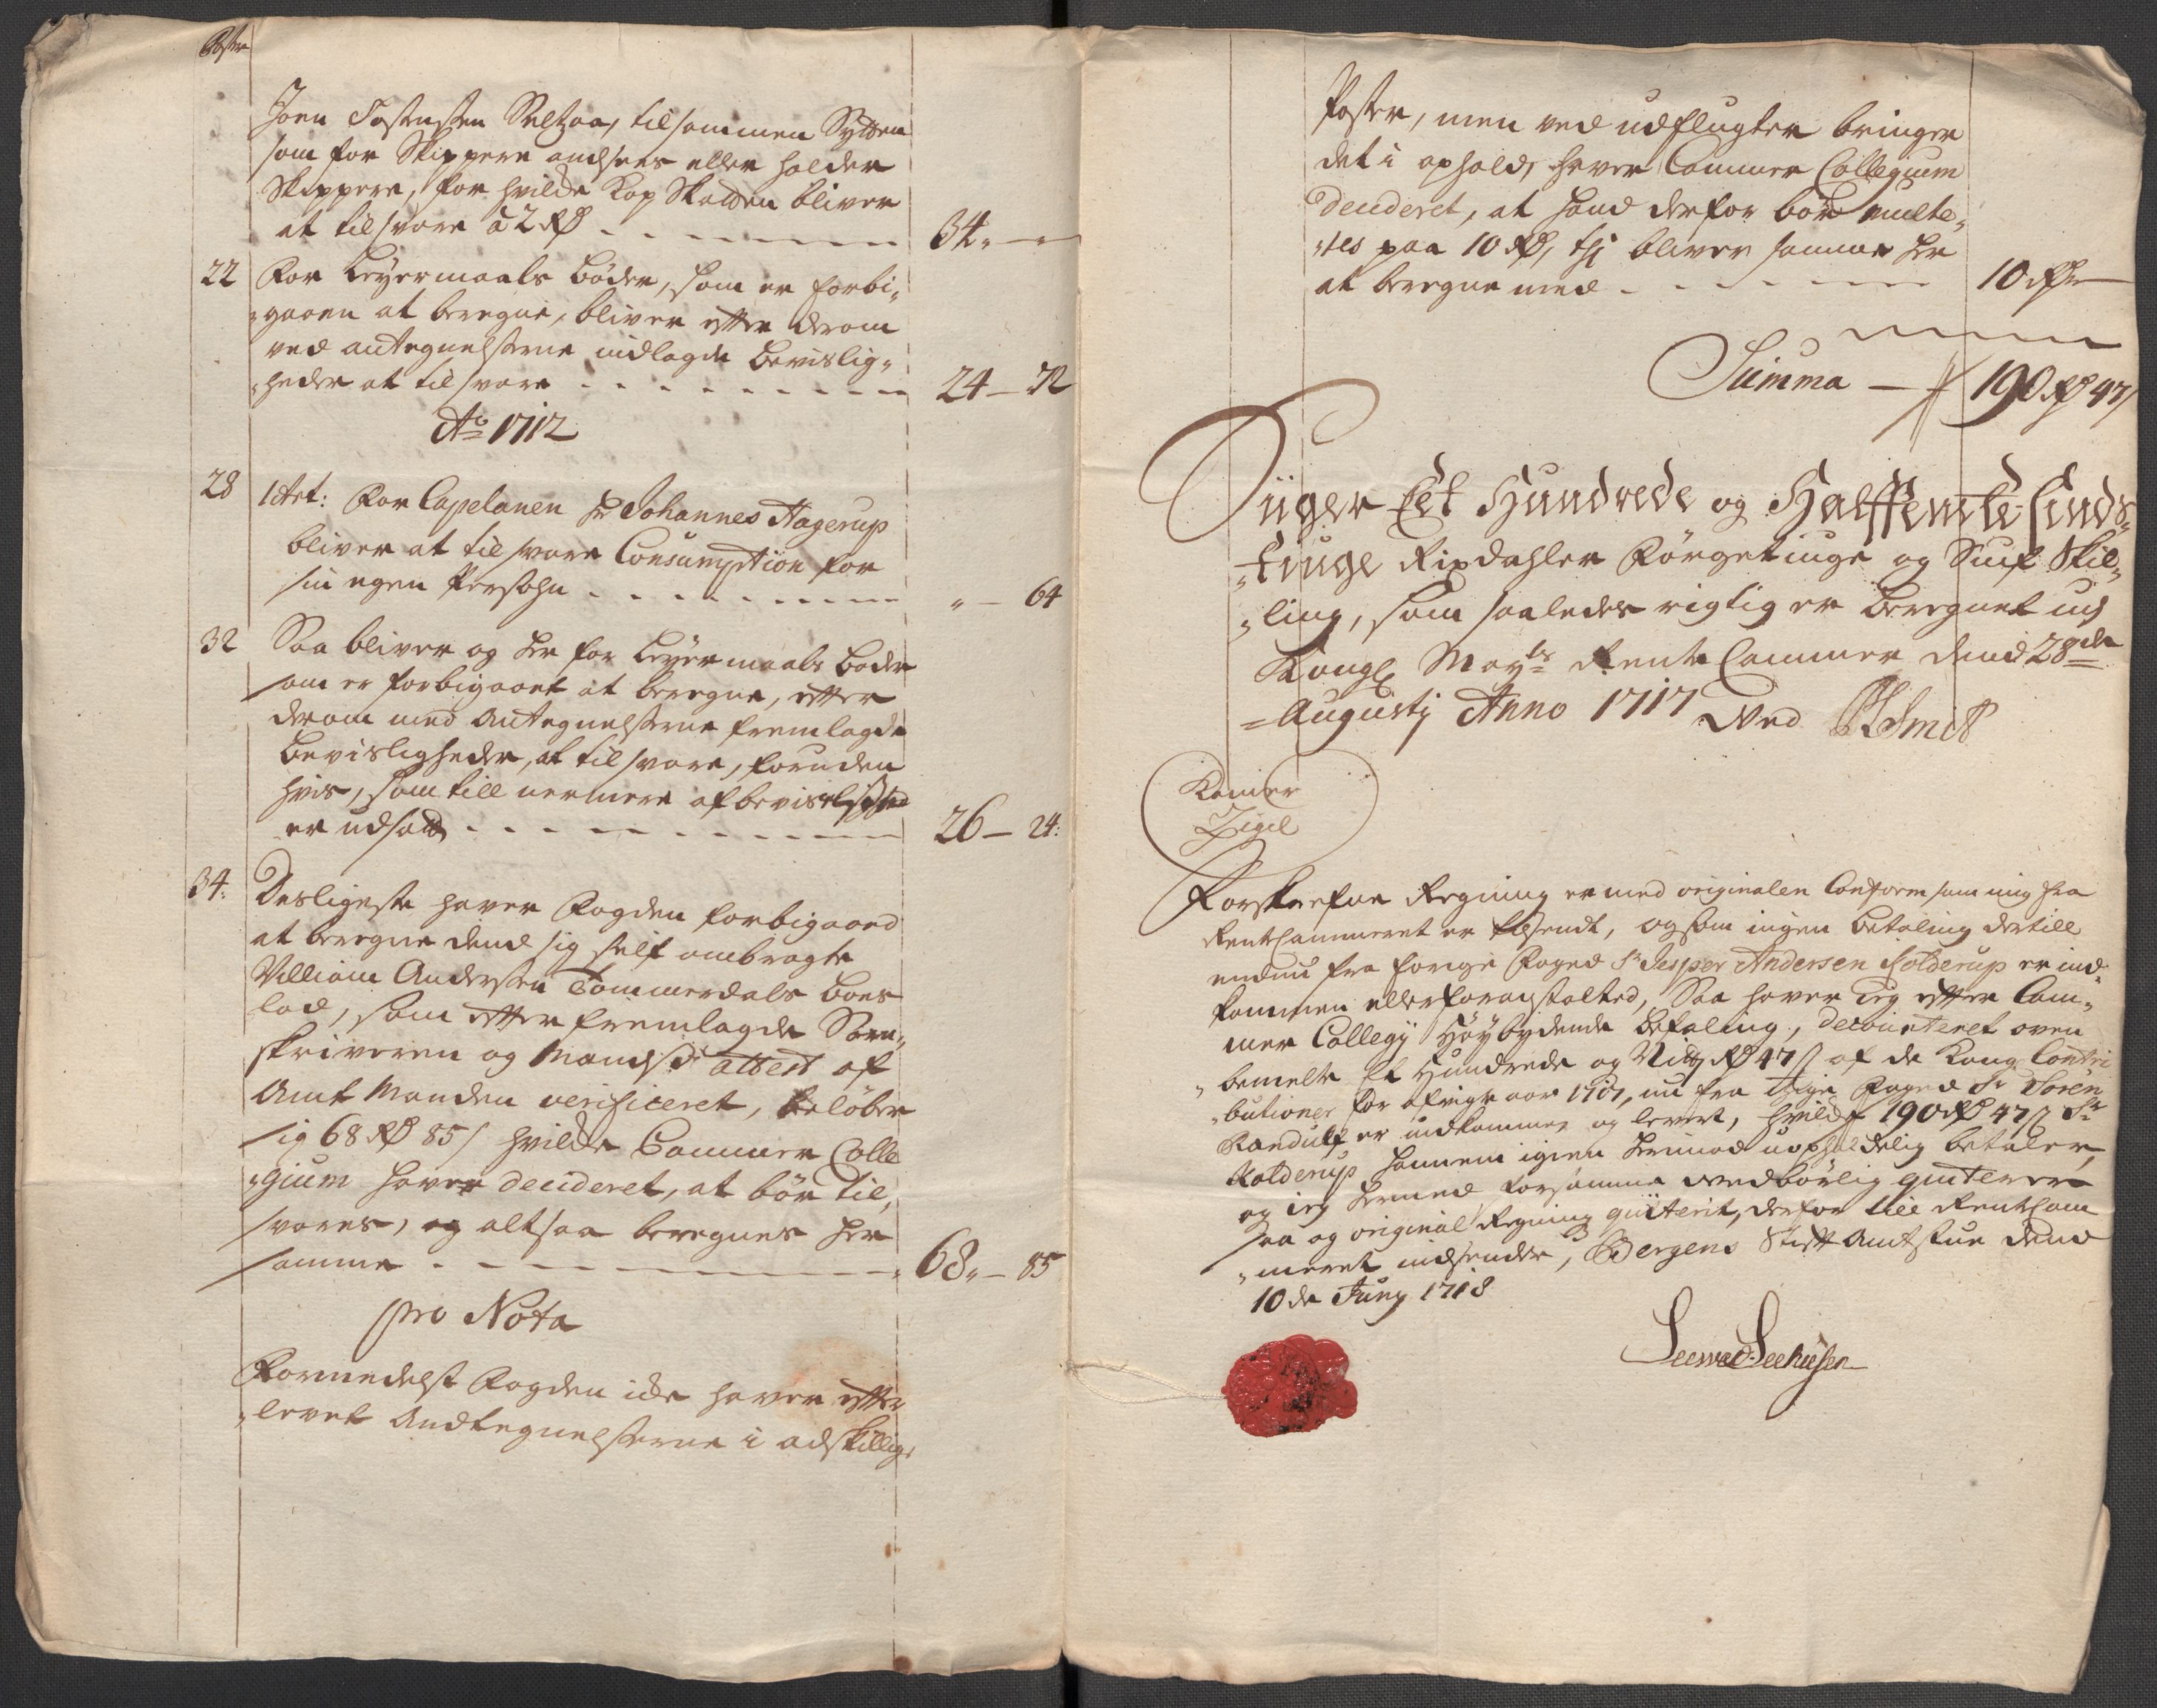 Poster
Joen Tostensen Seltzaa, tilsammen Sytten
som for Skippere andsees eller holder
Skippere, for hvilcke Kop Skatten bliver
at tilsvare à 2 Rd 34 „ —
22 For Leyermaals bøder, som er forbi„
„gaaen at beregne, bliver effter derom
ved antegnelserne indlagde bevislig„
„heder at tilsvare 24 — 72
Ao 1712
28 1 Art: For Capelanen Hr Johannes Hagerup
bliver at tilsvare Consumption for
sin egen Persohn „ — 64
32 Saa bliver og her for Leyermaals bøder
som er forbigaaet at beregne, effter
derom med Antegnelserne fremlagde
bevisligheder, at tilsvare, foruden
hvis, som till nermere afbeviselighed
er udsatt 26 — 24:
34: Desligeste haver Fogden forbigaaed
at beregne dend sig self ombragte
Villiam Andersen Tømmerdals boes
lod, som effter fremlagde Soren„
skriveren og Mænds attest af
Amt Manden verificeret, beløber
sig 68 Rd 85 s hvilcke Cammer Colle
„gium haver decideret, at bør til„
svares, og altsaa beregnes her
samme 68 „ — 85
pro Nota
Formedelst Fogden icke haver effter
„levet Andtegnelserne i adskillige
Poster, men ved udflugter bringer
det i ophold, haver Cammer Collegium
decideret, at hand derfor bør mulcte„
„res paa 10 Rd, thj bliver samme her
at beregne med 10 Rd —
Summa — 190 Rd 47 s
Siiger Eet Hundrede og Halffemte Sinds„
„tiuge Rixdahler Førgetiuge og Siuf Skil„
„ling, som saaledes rigtig er beregnet udj
Kongl Mayts Rente Cammer dend 28de
Augustj Anno 1717 Ved Smidt
Kamer
Zigel
Forskrefne Regning er med originalen Conform som mig fra
Rentecammeret er tilsendt, og som ingen betaling dertill
endnu fra forige Foged Sr Jesper Andersen Kolderup er ind„
kommen eller foranstalted, Saa haver Jeg effter Cam„
mer Collegij Høybydende befaling, decourteret oven
„bemelte Et Hundrede og Nitty Rd 47 s af de Kongl Contri
„butioner for afvigte aar 1717, nu fra Foged Sr Søren
Randulf er indkommen og levert, hvilcke 190 Rd 47 s Sr
Kolderup hannem igien herimod uopholdelig betaler,
og ieg hermed forsamme vedbørlig quiterer
saa og original Regning quiterit, derfor till Rentecam
„meret indsender, Bergens Stifft Amtstue dend
10de Junij 1718
Severed Seehusen